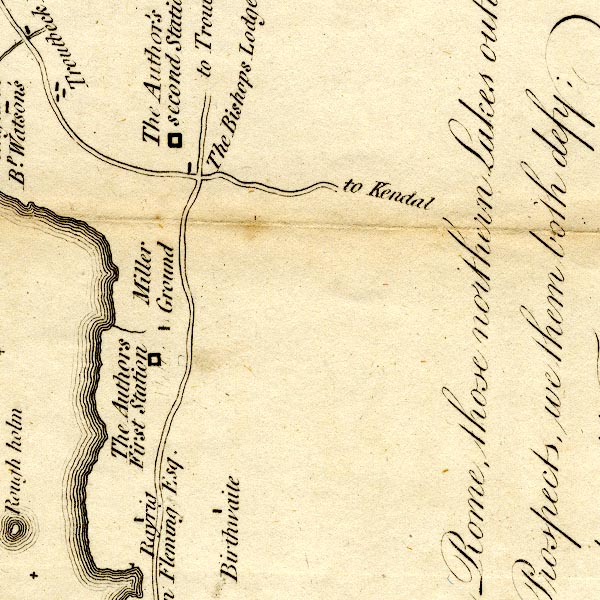 Troutbeck
The Authors
second Station
to Trou
The Bishops Lodge
Bp. Watsons
to Kendal
Miller
Ground
The Authors
First Station
Rough holm
Rayrig
Fleming Esq.
Birthwaite
Rome, those northern Lakes outv
Prospects, we them both defy;